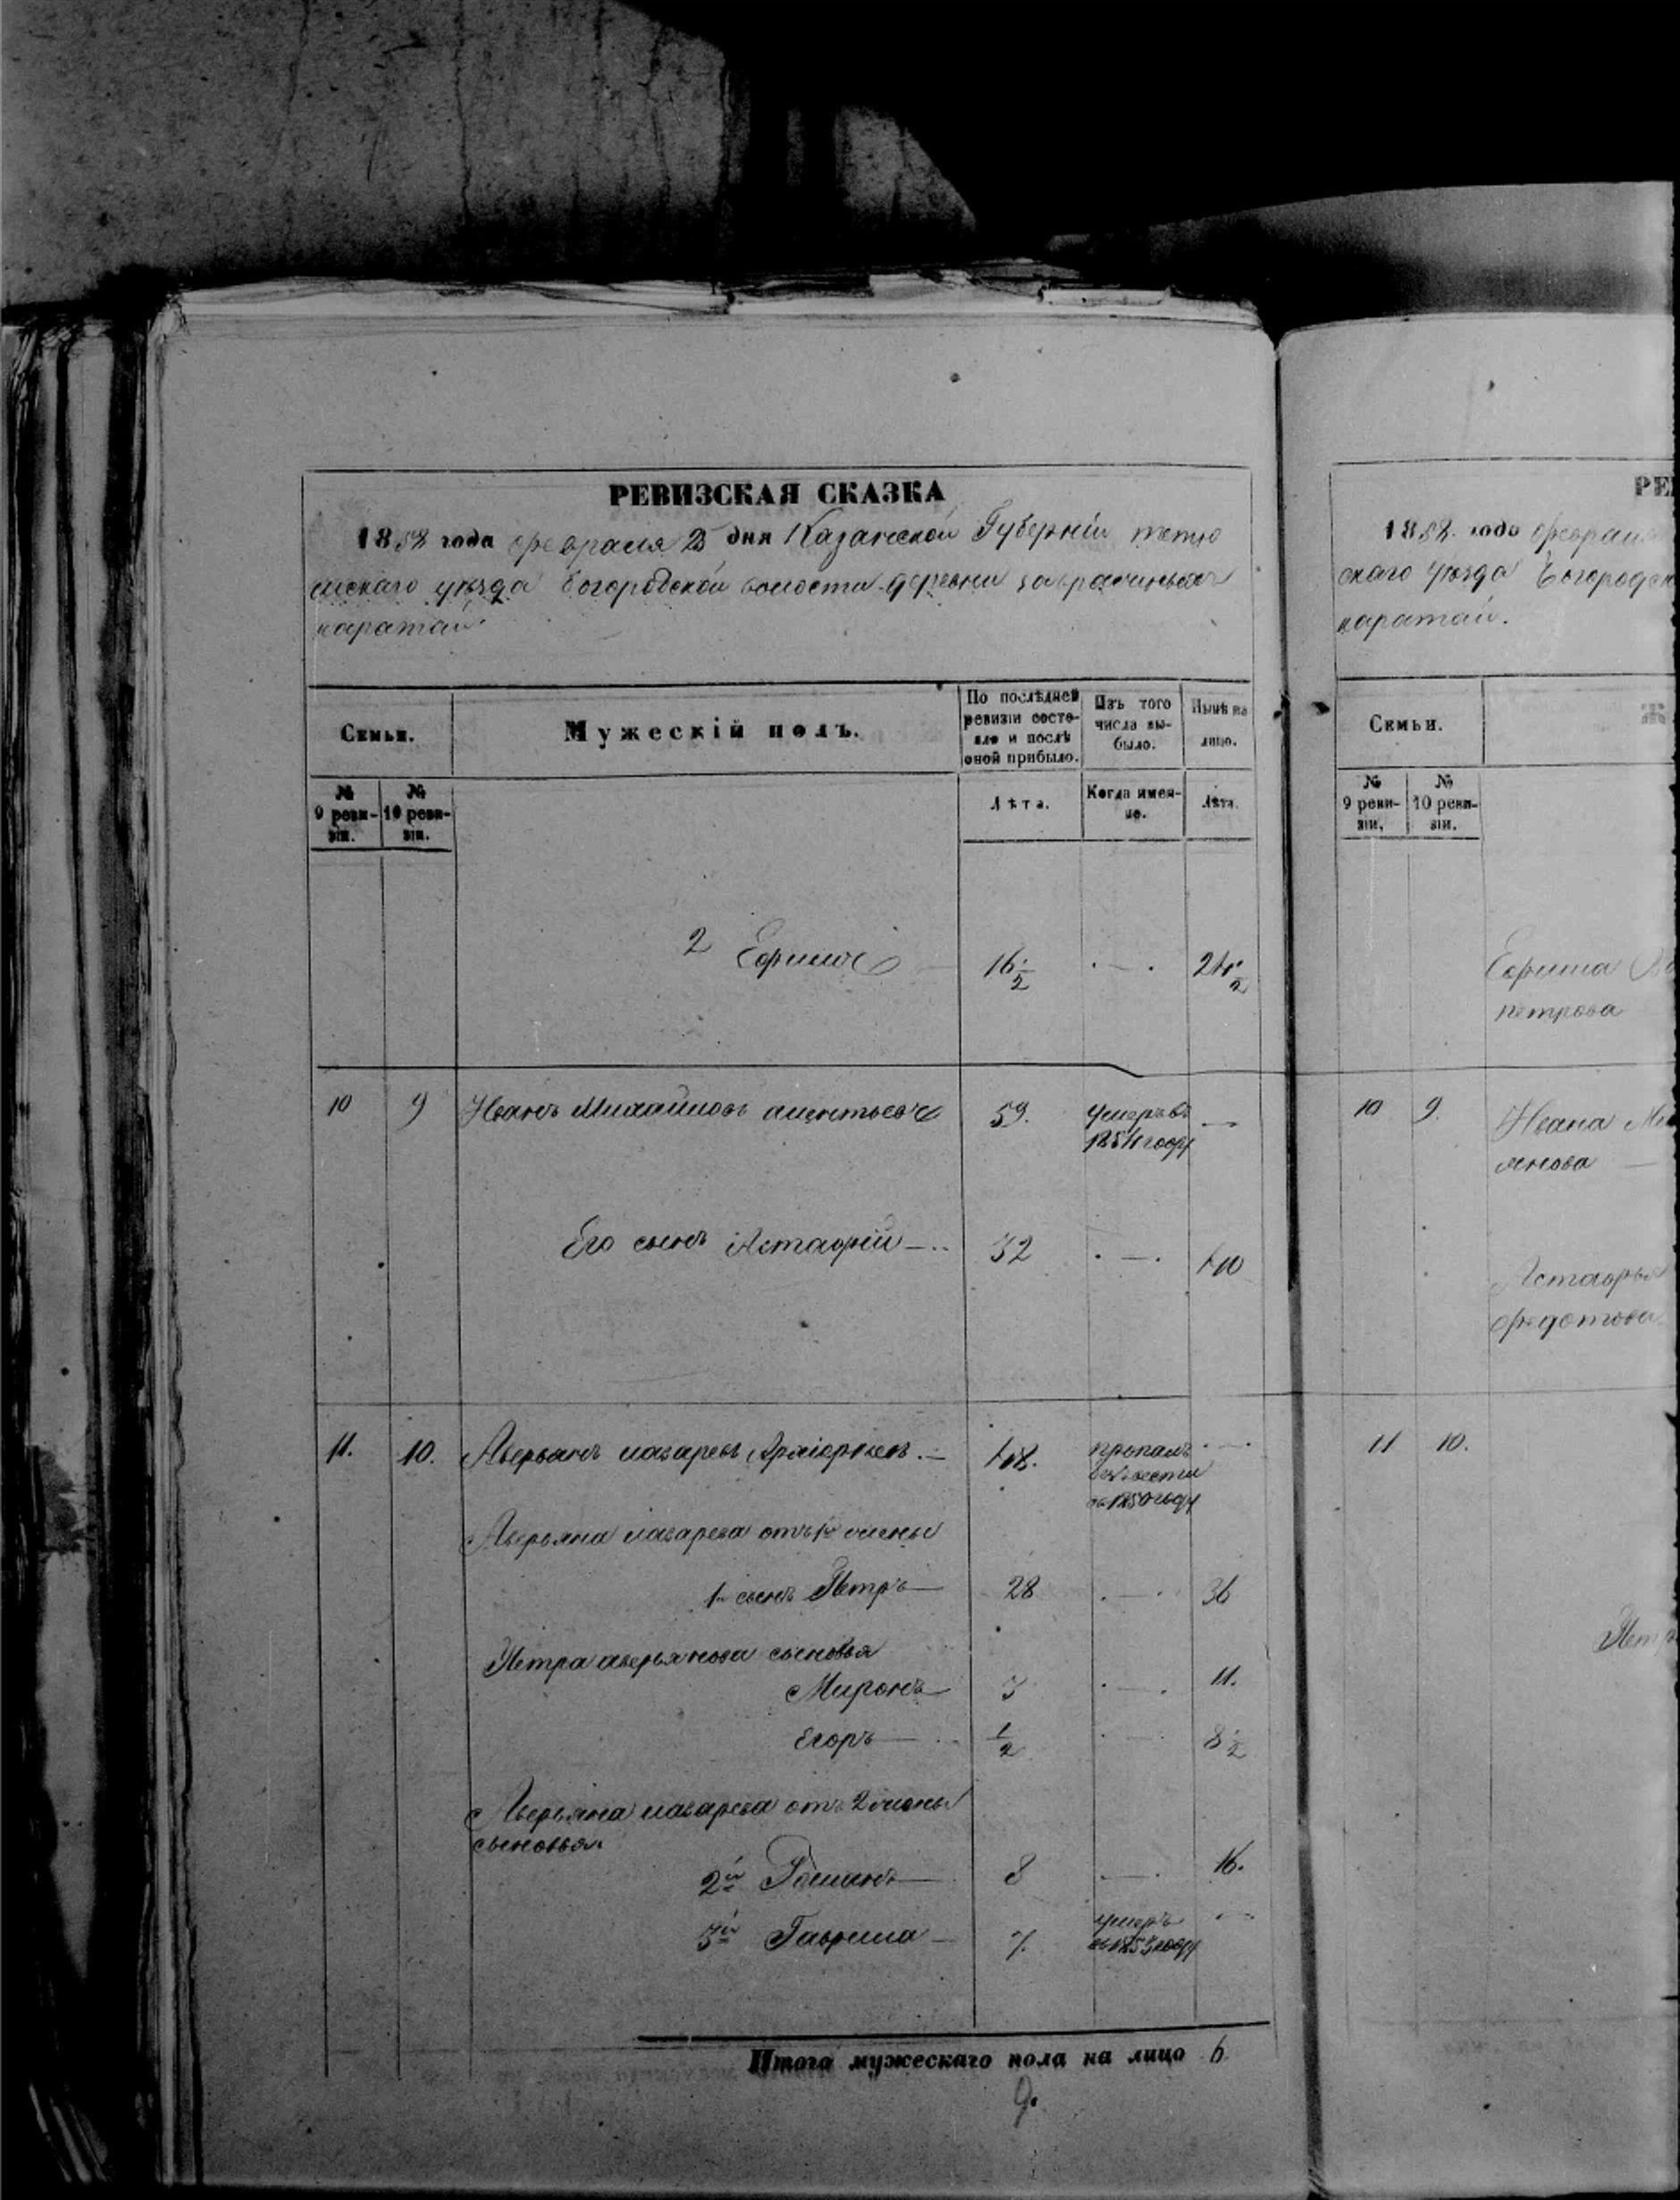 РЕВИЗСКАЯ СКАЗКА
1858 года февраля 23 дня Казанской Губернiи тетю
шскаго уѣзда богородской волости деревни
каратай.
Семьи.
Мужескiй полъ.
По послѣдней ревизiи состояло и послѣ оной прибыло.
Изъ того числа выбыло.
Нынѣ на лицо.
№ 9 ревизiи.
№ 10 ревизiи.
Лѣта.
Когда именно.
Лѣта.
2 Ефимъ 16 1/2 24 1/2
10 9 Иванъ Михайловъ 59. умеръ въ 1854 году —
Его сынъ Астафiй — 32 · — · 40
11. 10. Аверьянъ лазаревъ 48. пропалъ безъ вести въ 1850 году
Аверьяна лазарева отъ 1й жены
1й сынъ Петръ — 28 · — · 36
Петра аверьянова сыновья
Миронъ — 3 · — · 11.
Егоръ — 1/2 · — · 8 1/2
Аверьяна лазарева отъ 2 жены
сыновья
2й Романъ — 8 · — · 16.
3й Гаврила — 7. умеръ году
Итого мужескаго пола на лицо 6.
9.
РЕ
1858. года феврал
скаго уѣзда Богородск
каратай.
Семьи.
Ж
№ 9 ревизiи.
№ 10 ревизiи.
Ефима
петрова
10 9. Ивана Ми
Астафья
федотова
11 10.
Петр